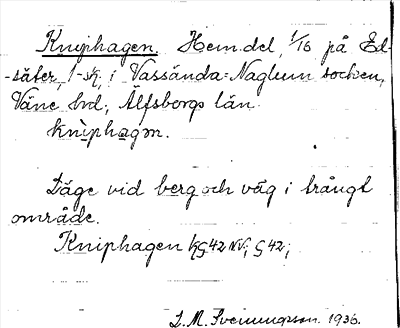 Kniphagen. Hem.del, 1/16 på Ed-
-säter, 1-sk, i Vassända-Naglum socken,
Väne hd; Älfsborgs län.
kniphagən.
Läge vid berg och väg i trångt
område.
Kniphagen kG42 NV; G42;
L. M. Svenungsson. 1936.